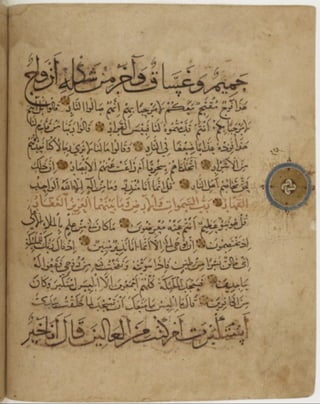 حميم وغساق وآخر من شكله أزواج
هذا فوج مقتحم معكم لا مرحبا بهم إنهم صالوا النار قالوا بل أنتم
لا مرحبا بكم أنتم قدمتموه لنا فبئس القرار قالوا ربنا من قدم لنا
هذا فزده عذابا ضعفا في النار وقالوا ما لنا لا نرى رجالا كنا نعدهم
من الأشرار أتخذناهم سخريا أم زاغت عنهم الأبصار إن ذلك
لحق تخاصم أهل النار قل إنما أنا منذر وما من إله إلا الله الواحد
القهار رب السموات والأرض وما بينهما العزيز الغفار
قل هو نبأ عظيم أنتم عنه معرضون ما كان لي من علم بالملإ الأعلى
إذ يختصمون إن يوحى إلي إلا أنما أنا نذير مبين إذ قال ربك للملئكة
إني خالق بشرا من طين فإذا سويته ونفخت فيه من روحي فقعوا له
ساجدين فسجد الملئكة كلهم أجمعون إلا إبليس استكبر وكان
من الكافرين قال يا إبليس ما منعك أن تسجد لما خلقت بيدي
أستكبرت أم كنت من العالين قال أنا خير